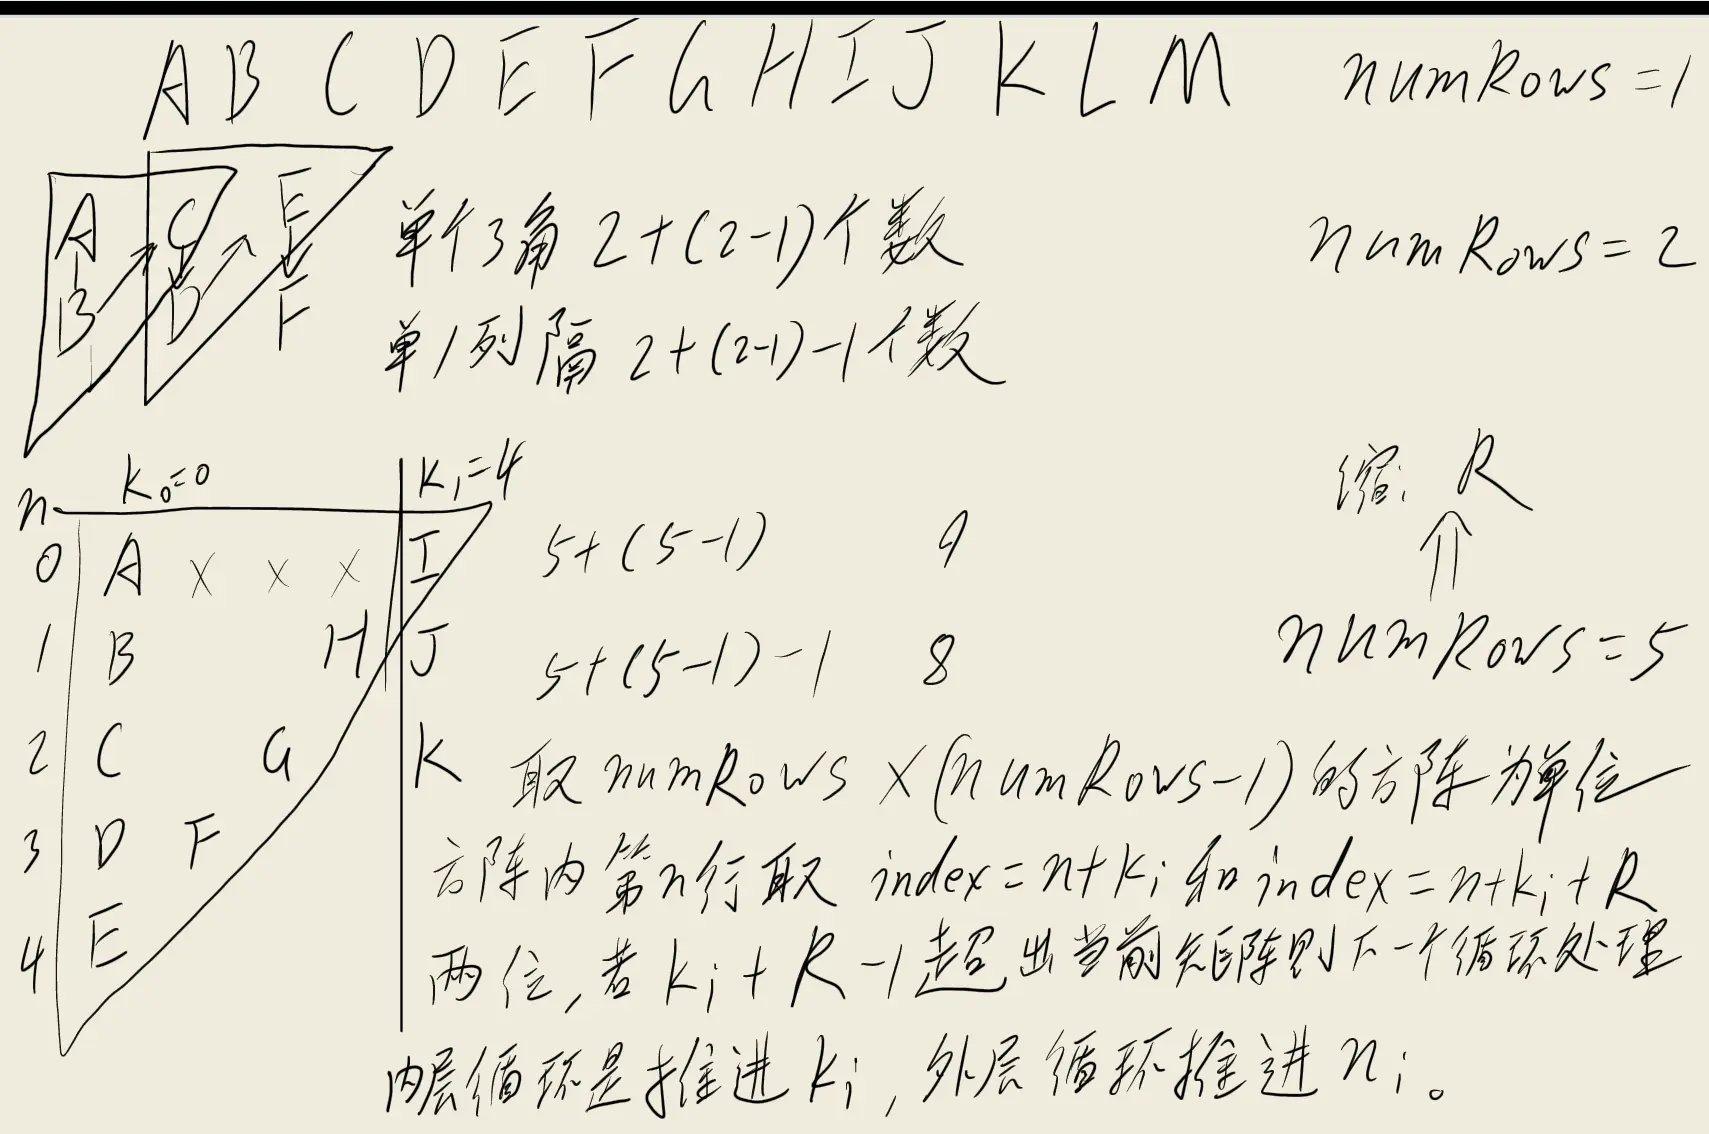 A B C D E F G H I J K L M numRows=1
A C E 单个3角 2+(2-1)个数 numRows=2
B D F
单1列隔 2+(2-1)-1个数
n K₀=0 K₁=4 缩: R
0 A X X X I 5+(5-1) 9
1 B H J 5+(5-1)-1 8 numRows=5
2 C G K 取 numRows X (numRows-1)的方阵为单位
3 D F 方阵内第n行取 index=n+Ki和index=n+Ki+R
4 E 两位,若Ki+R-1超出当前矩阵则下一个循环处理
内层循环是推进Ki,外层循环推进ni。